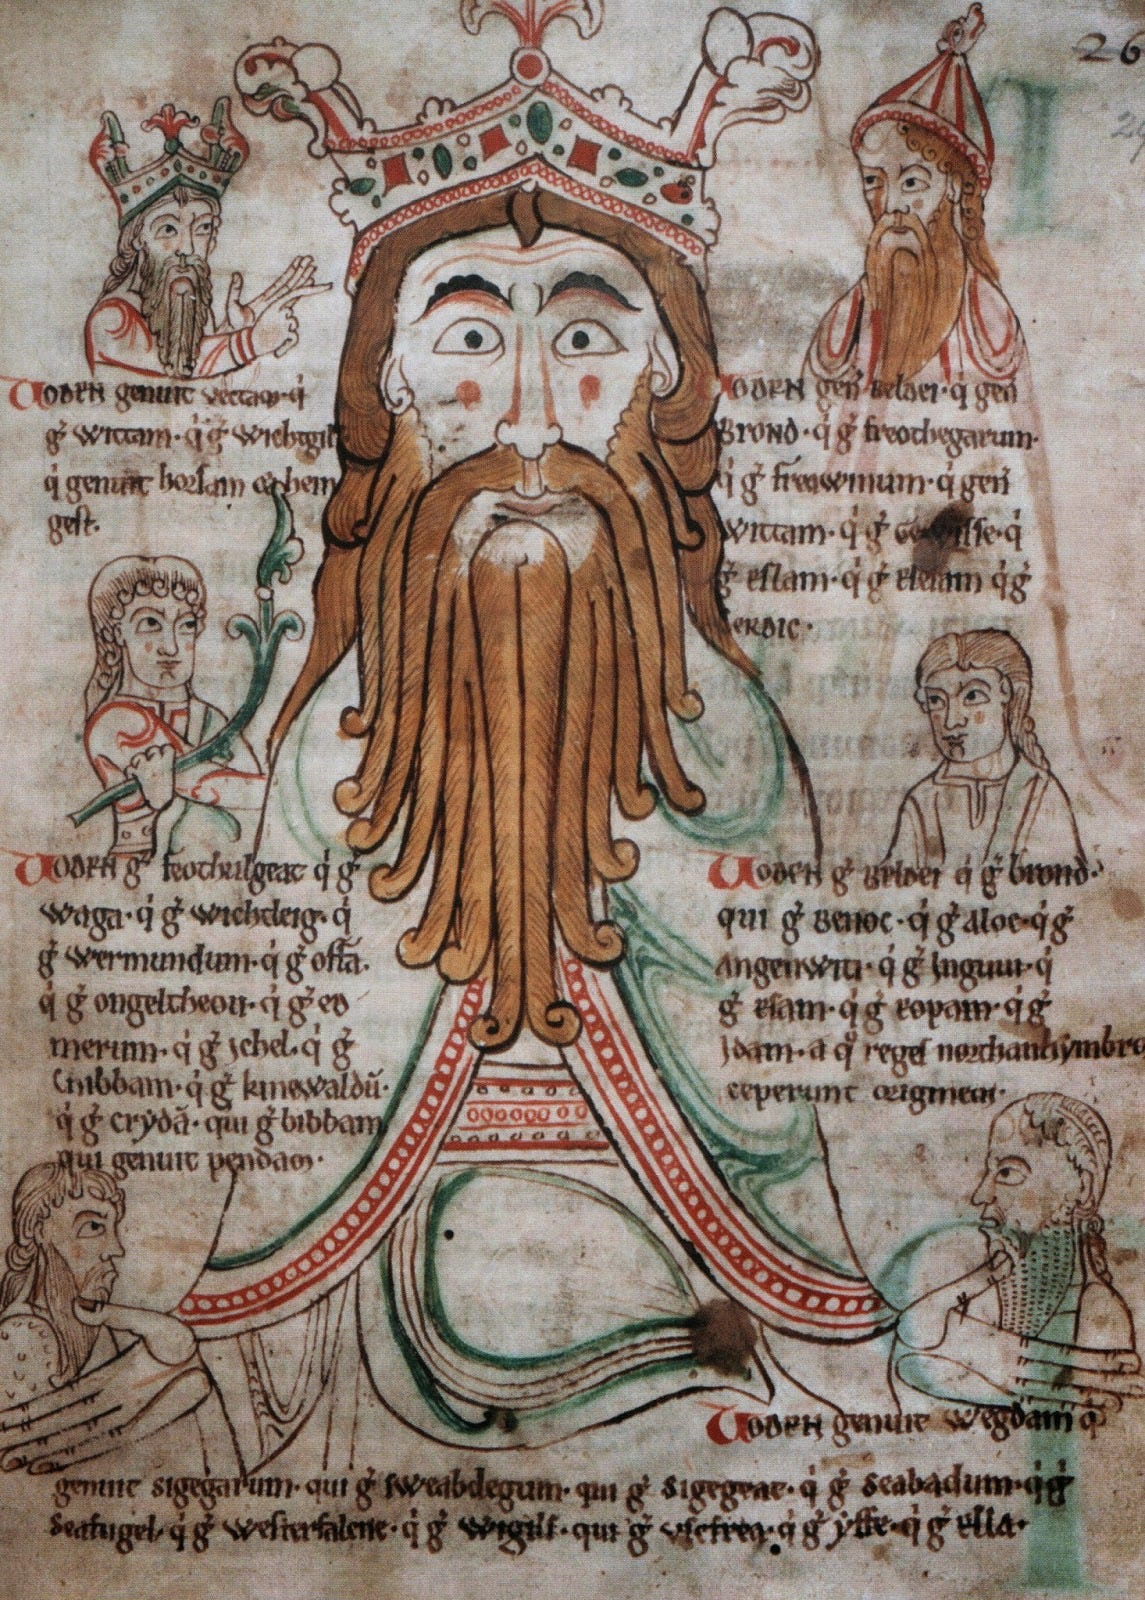 26
Uoden genuit vectam · q̇
g̓ wittam · q̇ g̓ wichtgil
q̇ genuit horsam ⁊ hen
gest.
Uoden gen̄ beldei · q̇ gen̄
Brond · q̇ g̓ freothegarum ·
q̇ g̓ freawinum · q̇ gen̄
wittam · q̇ g̓ Gewisse · q̇
g̓ eslam · q̇ g̓ elesam q̇ g̓
cerdic ·
Uoden g̓ feothulgeat q̇ g̓
waga · q̇ g̓ wichtleig · q̇
g̓ wermundum · q̇ g̓ offā ·
q̇ g̓ ongeltheou · q̇ g̓ eo
merum · q̇ g̓ ichel · q̇ g̓
Cnibbam · q̇ g̓ kinewaldū ·
q̇ g̓ crydā · qui g̓ bibbam
qui genuit pendam ·
Uoden g̓ Beldei q̇ g̓ brond ·
qui g̓ Benoc · q̇ g̓ aloc · q̇ g̓
angenwiti · q̇ g̓ inguiu · q̇
g̓ esam · q̇ g̓ eopam · q̇ g̓
Idam · a q̊ reges northanhymbro
ceperunt originem ·
Uoden genuit wegdam q̇
genuit sigegarum · qui g̓ sweabdegum · qui g̓ sigegeat · q̇ g̓ seabadum · q̇ g̓
seafugel · q̇ g̓ westerfalcne · q̇ g̓ wigils · qui g̓ uscfrea · q̇ g̓ yffe · q̇ g̓ ella ·